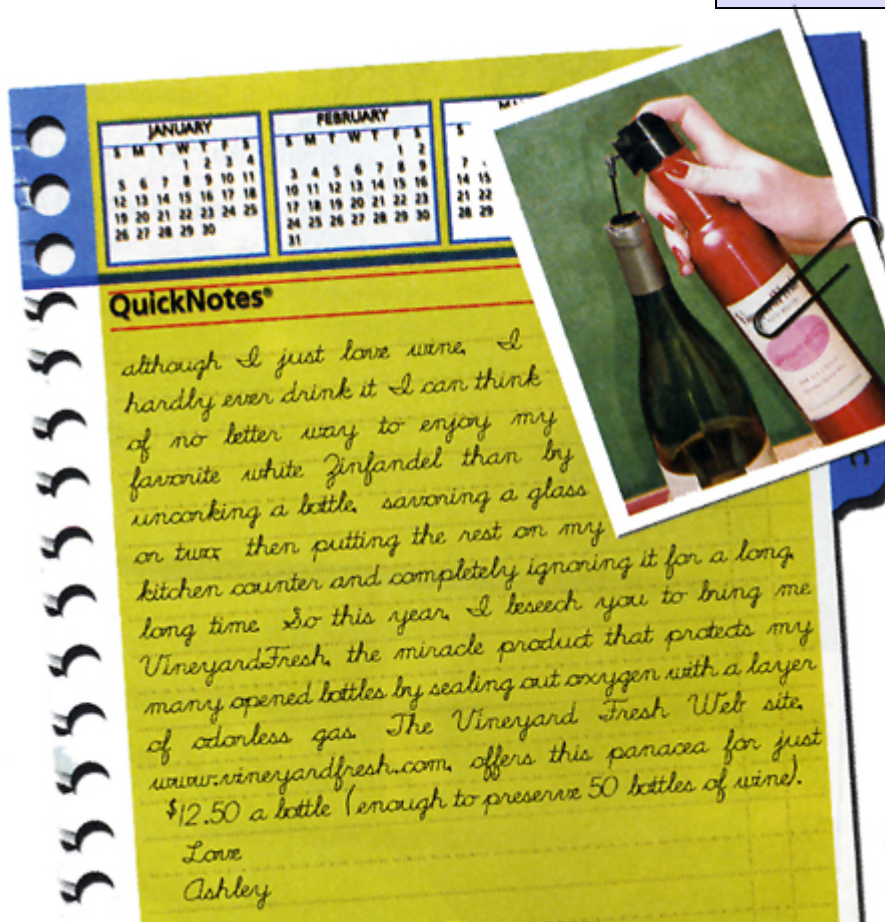 JANUARY
S M T W T F S
1 2 3 4
5 6 7 8 9 10 11
12 13 14 15 16 17 18
19 20 21 22 23 24 25
26 27 28 29 30
FEBRUARY
S M T W T F S
1 2
3 4 5 6 7 8 9
10 11 12 13 14 15 16
17 18 19 20 21 22 23
24 25 26 27 28 29 30
31
S
7
14 15
21 22
28 29
QuickNotes®
although I just love wine, I
hardly ever drink it I can think
of no better way to enjoy my
favorite white Zinfandel than by
uncorking a bottle, savoring a glass
or two, then putting the rest on my
kitchen counter and completely ignoring it for a long,
long time. So this year, I beseech you to bring me
VineyardFresh, the miracle product that protects my
many opened bottles by sealing out oxygen with a layer
of odorless gas. The Vineyard Fresh Web site,
www.vineyardfresh.com, offers this panacea for just
$12.50 a bottle (enough to preserve 50 bottles of wine).
Love
Ashley